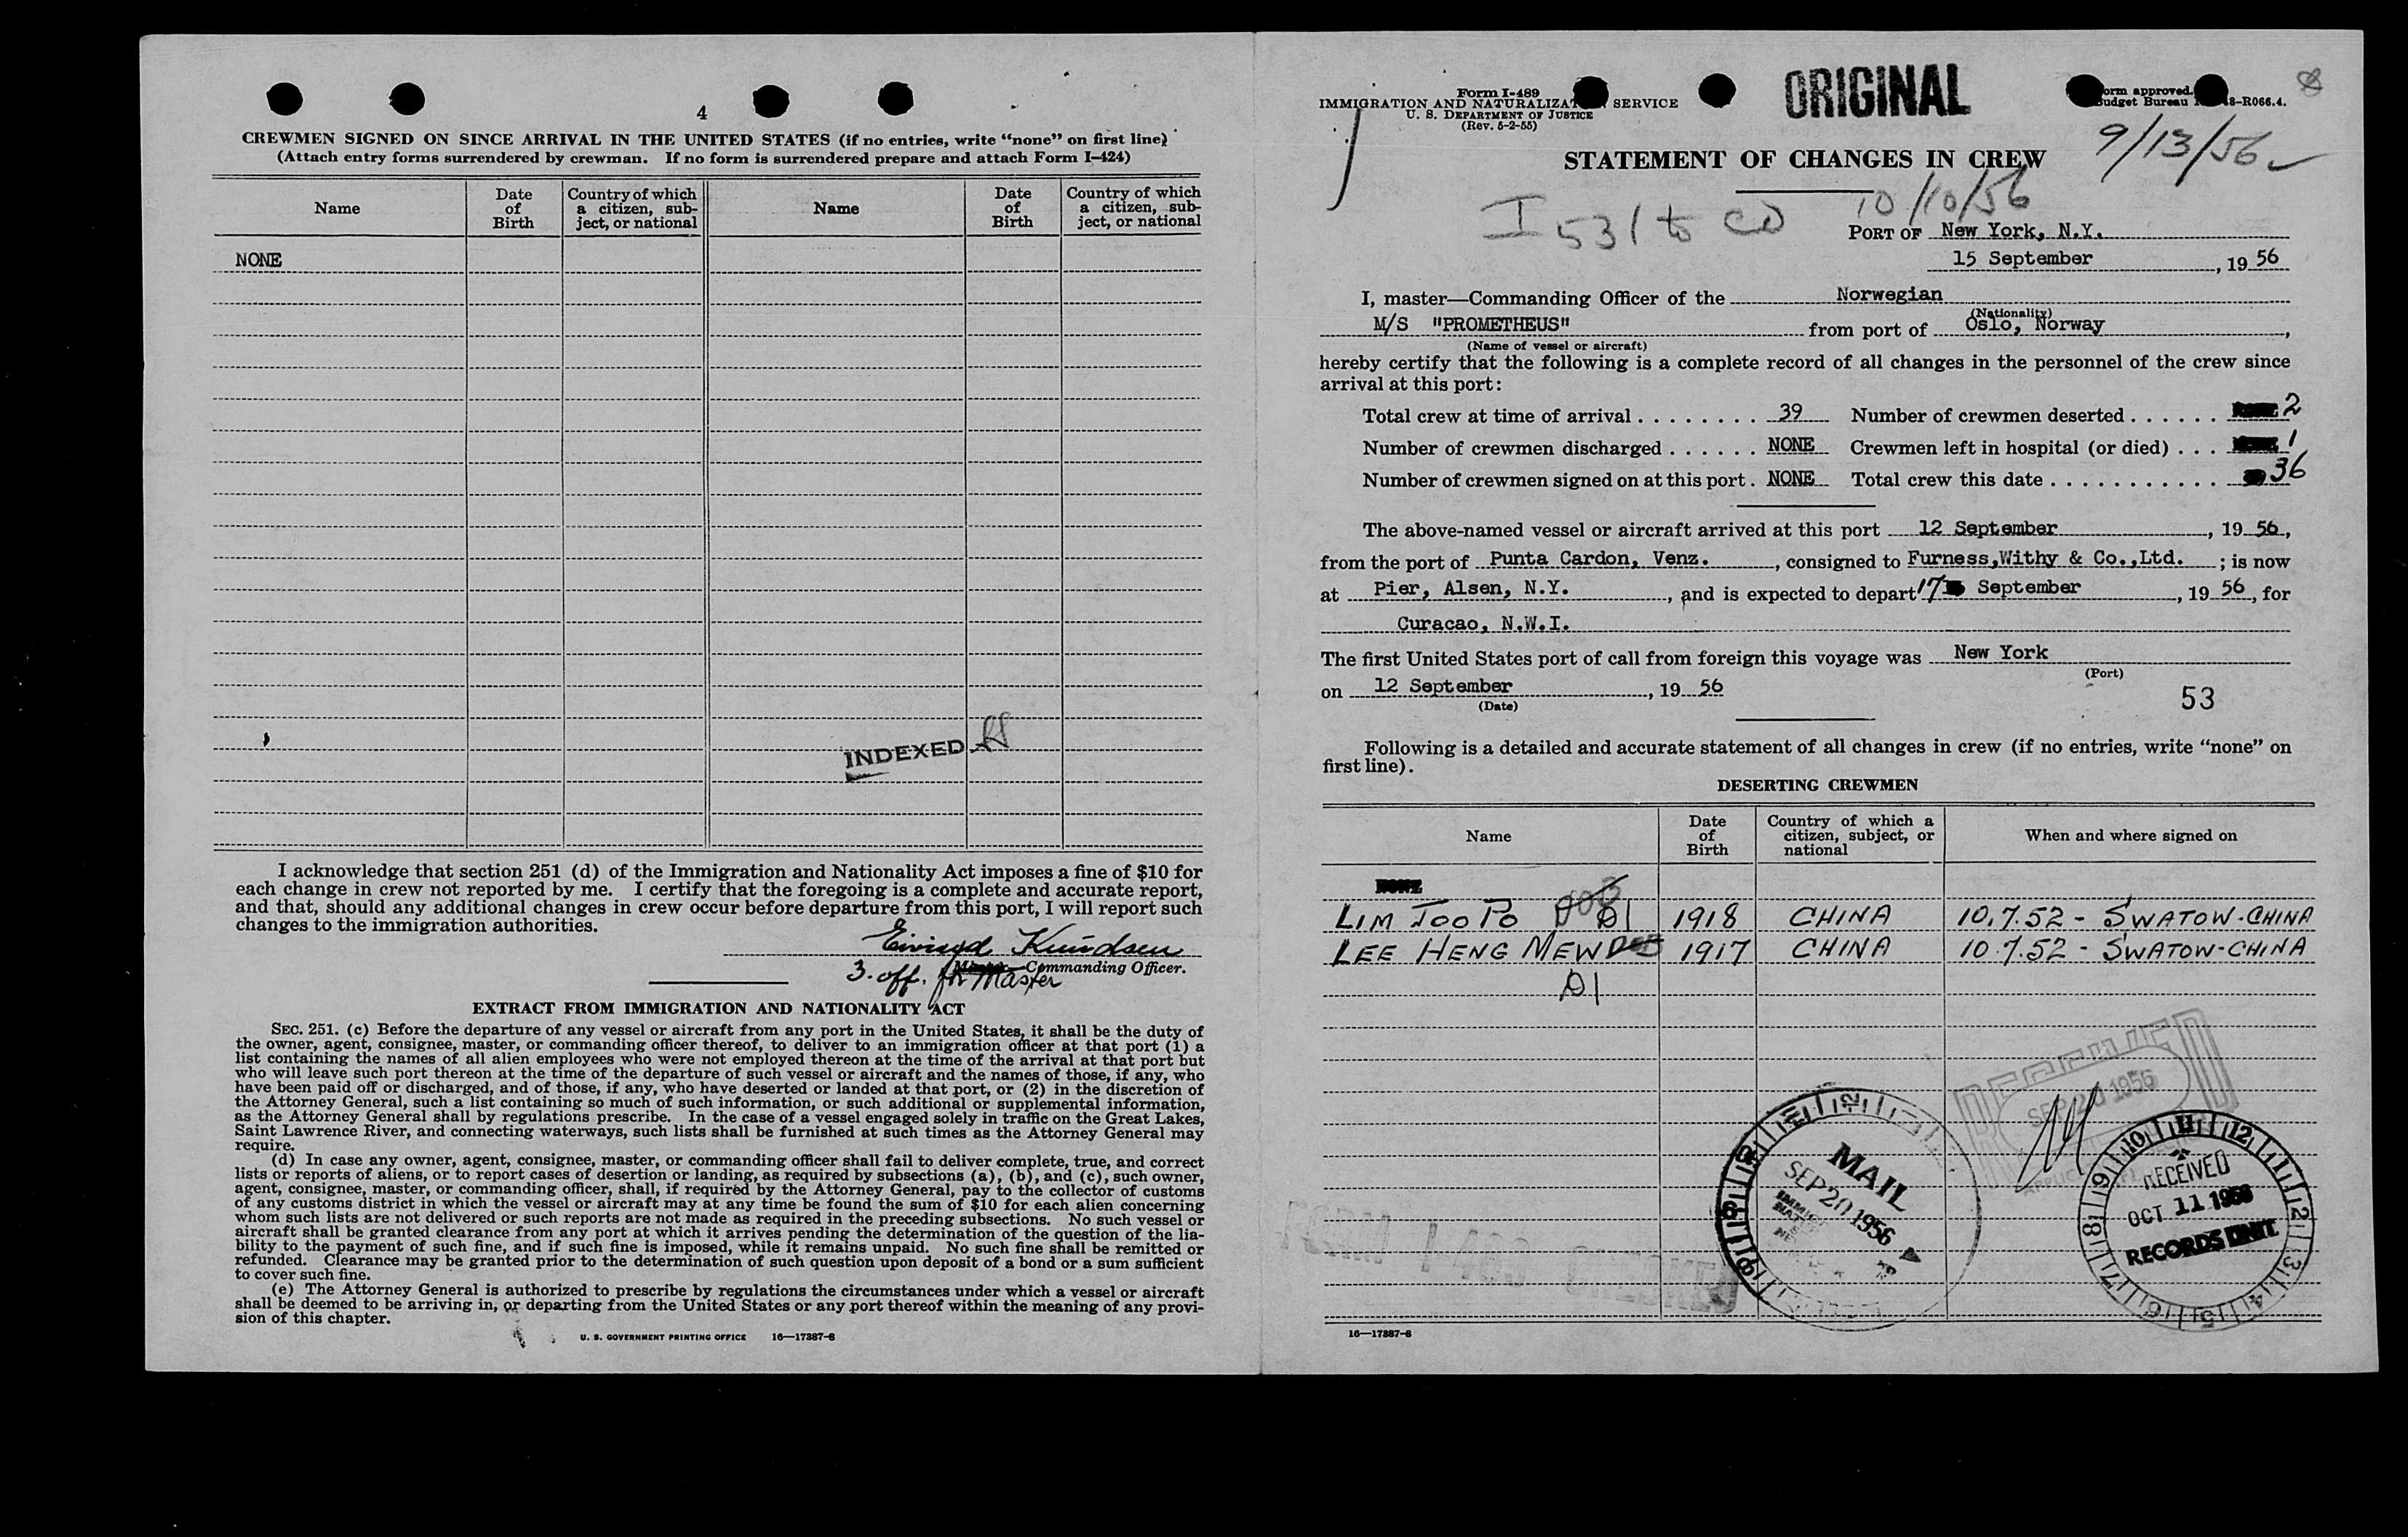 4
CREWMEN SIGNED ON SINCE ARRIVAL IN THE UNITED STATES (if no entries, write “none” on first line)
(Attach entry forms surrendered by crewman. If no form is surrendered prepare and attach Form I–424)
Name | Date of Birth | Country of which a citizen, subject, or national | Name | Date of Birth | Country of which a citizen, subject, or national
NONE
INDEXED
I acknowledge that section 251 (d) of the Immigration and Nationality Act imposes a fine of $10 for
each change in crew not reported by me. I certify that the foregoing is a complete and accurate report,
and that, should any additional changes in crew occur before departure from this port, I will report such
changes to the immigration authorities.
Knudsen
Commanding Officer.
3. off. for Master
EXTRACT FROM IMMIGRATION AND NATIONALITY ACT
SEC. 251. (c) Before the departure of any vessel or aircraft from any port in the United States, it shall be the duty of
the owner, agent, consignee, master, or commanding officer thereof, to deliver to an immigration officer at that port (1) a
list containing the names of all alien employees who were not employed thereon at the time of the arrival at that port but
who will leave such port thereon at the time of the departure of such vessel or aircraft and the names of those, if any, who
have been paid off or discharged, and of those, if any, who have deserted or landed at that port, or (2) in the discretion of
the Attorney General, such a list containing so much of such information, or such additional or supplemental information,
as the Attorney General shall by regulations prescribe. In the case of a vessel engaged solely in traffic on the Great Lakes,
Saint Lawrence River, and connecting waterways, such lists shall be furnished at such times as the Attorney General may
require.
(d) In case any owner, agent, consignee, master, or commanding officer shall fail to deliver complete, true, and correct
lists or reports of aliens, or to report cases of desertion or landing, as required by subsections (a), (b), and (c), such owner,
agent, consignee, master, or commanding officer, shall, if required by the Attorney General, pay to the collector of customs
of any customs district in which the vessel or aircraft may at any time be found the sum of $10 for each alien concerning
whom such lists are not delivered or such reports are not made as required in the preceding subsections. No such vessel or
aircraft shall be granted clearance from any port at which it arrives pending the determination of the question of the lia-
bility to the payment of such fine, and if such fine is imposed, while it remains unpaid. No such fine shall be remitted or
refunded. Clearance may be granted prior to the determination of such question upon deposit of a bond or a sum sufficient
to cover such fine.
(e) The Attorney General is authorized to prescribe by regulations the circumstances under which a vessel or aircraft
shall be deemed to be arriving in, or departing from the United States or any port thereof within the meaning of any provi-
sion of this chapter.
U. S. GOVERNMENT PRINTING OFFICE 16—17387-8
Form I-489
IMMIGRATION AND NATURALIZATION SERVICE
U. S. DEPARTMENT OF JUSTICE
(Rev. 5-2-55)
ORIGINAL
Form approved.
Budget Bureau 3-R066.4.
8
9/13/56
STATEMENT OF CHANGES IN CREW
10/10/56
I 531 to CO
PORT OF New York, N.Y.
15 September, 19 56
I, master—Commanding Officer of the Norwegian
(Nationality)
M/S "PROMETHEUS" from port of Oslo, Norway,
(Name of vessel or aircraft)
hereby certify that the following is a complete record of all changes in the personnel of the crew since
arrival at this port:
Total crew at time of arrival . . . . . . . . 39 Number of crewmen deserted . . . . . . 2
Number of crewmen discharged . . . . . . NONE Crewmen left in hospital (or died) . . . 1
Number of crewmen signed on at this port . NONE Total crew this date . . . . . . . . . . . . 36
The above-named vessel or aircraft arrived at this port 12 September, 19 56,
from the port of Punta Cardon, Venz., consigned to Furness,Withy & Co.,Ltd. ; is now
at Pier, Alsen, N.Y., and is expected to depart 17 September, 19 56, for
Curacao, N.W.I.
The first United States port of call from foreign this voyage was New York
(Port)
on 12 September, 19 56
(Date)
53
Following is a detailed and accurate statement of all changes in crew (if no entries, write “none” on
first line).
DESERTING CREWMEN
Name | Date of Birth | Country of which a citizen, subject, or national | When and where signed on
NONE
LIM JOO PO D1 1918 CHINA 10.7.52 - SWATOW-CHINA
LEE HENG MEW 1917 CHINA 10.7.52 - SWATOW-CHINA
D1
SEP 20 1956
MAIL
SEP 20 1956
RECEIVED
OCT 11 1956
RECORDS UNIT
16—17387-8